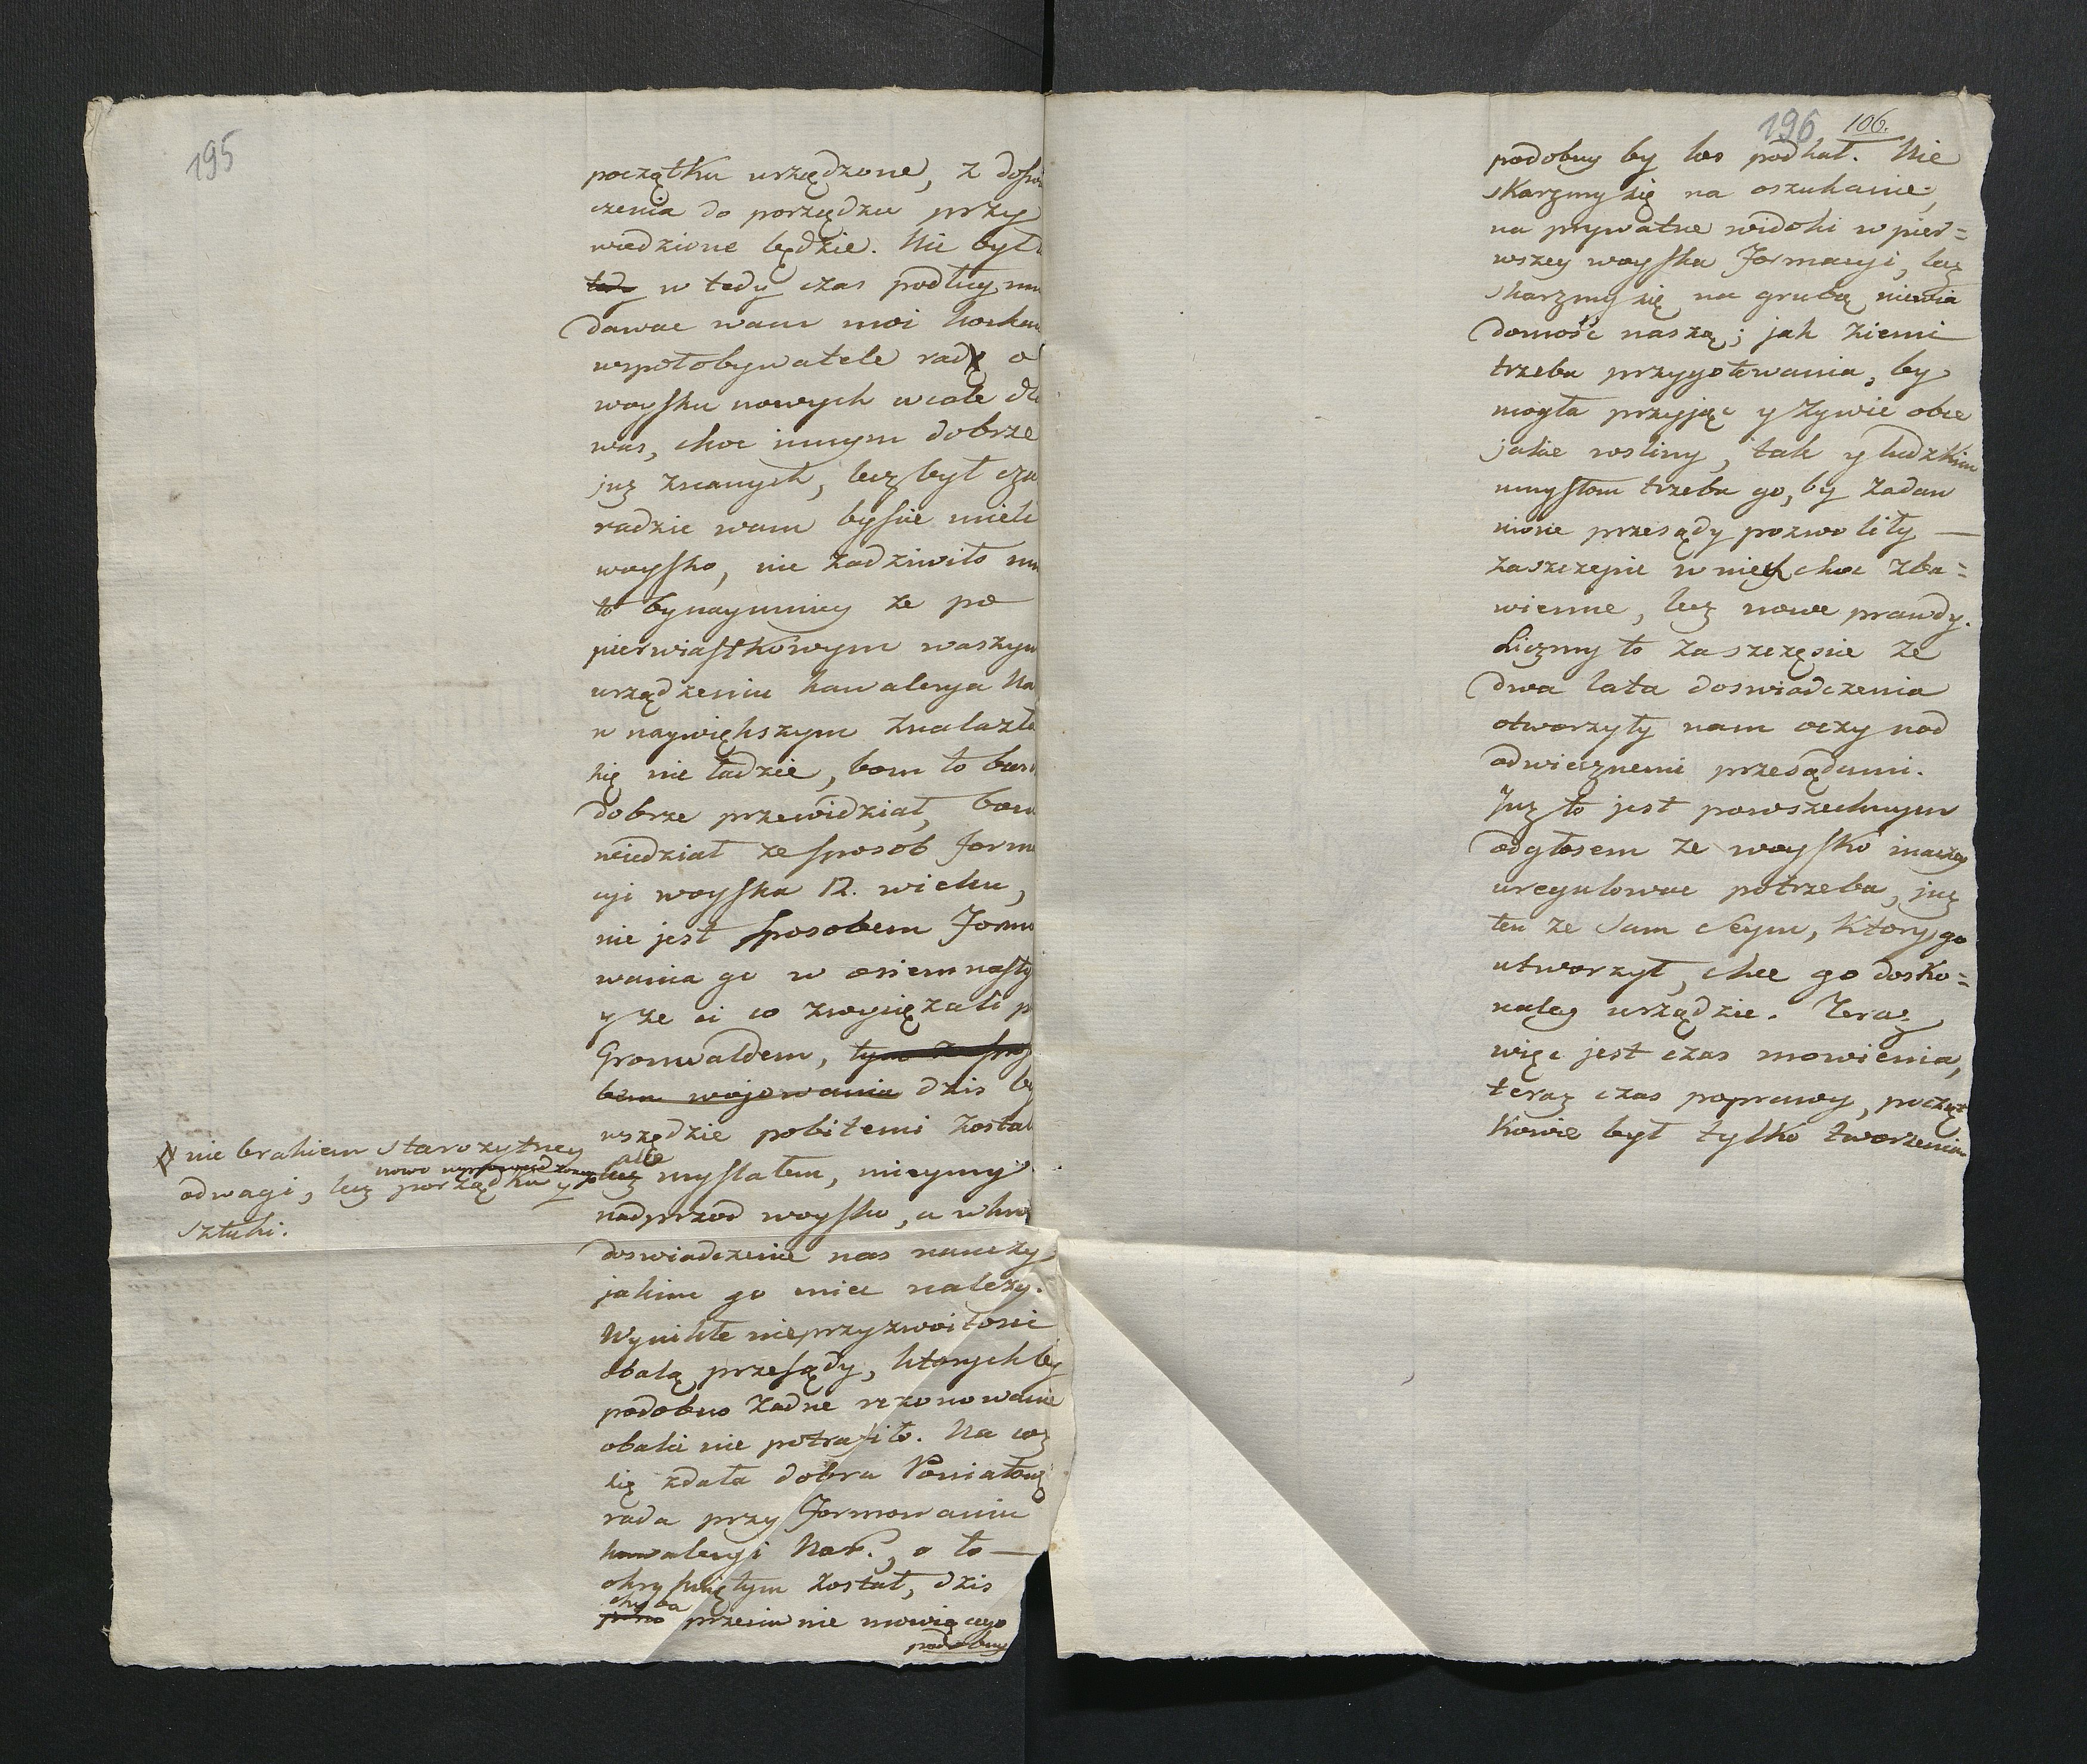 195
początku urządzone, z doswi
czenia do porządku przy
wiedzione będzie. Nie był
w tedy czas podług mn
dawac wam moi kocha
wspołobywatele rady o
woysku nowych wcale dl
was, choc innym dobrze
juz znanych, lecz był cza
radzic wam byscie mieli
woysko, nie zadziwiło mn
to bynaymniey ze po
pierwiastkowym waszym
urządzeniu kawalerya Na
w naywiększym znalazła
się nie ładzie, bom to bar
dobrze przewidział, bom
wiedział ze sposob forma
cyi woyska 12. wieku,
nie jest sposobem formo
wania go w osiemnasty
y ze ci co zwyciężali p
Gronwaldem, tym ze spos
bem wojowania dzis by
wszędzie pobitemi zostal
# nie brakiem starozytney
odwagi, lecz nowo wprowadzonego porządku y
sztuki.
ale
lecz myslałem, mieymy
nadprzod woysko, a wkro
doswiadczenie nas nauczy
jakim go miec nalezy.
Wynikłe nieprzyzwoitosci
obalą przesądy, ktorych by
podobno zadne rezonowanie
obalic nie potrafiło. Na coz
się zdała dobra Poniatow
rada przy formowaniu
kawaleryi Nar., o to
okrzykniętym został, dzis
chyba
pewno przeciw nie mowiącego
podobny
196 106.
podobny by los podkał. Nie
skarzmy się na oszukanie,
na prywatne widoki w pier=
wszey woyska formacyi, lecz
skarzmy się na grubą niewia
domość naszą; jak ziemi
trzeba przygotowania, by
mogła przyjąc y zywic obce
jakie rosliny, tak y ludzkim
umysłom trzeba go, by zadaw
nione przesądy pozwoliły
zaszczepic w niech choc zba=
wienne, lecz nowe prawdy.
Liczmy to za szczęscie ze
dwa lata doswiadczenia
otworzyły nam oczy nad
odwiecznemi przesądami.
Juz to jest powszechnym
odgłosem ze woysko inaczey
uregulowac potrzeba, juz
ten ze sam Seym, ktory go
utworzył, chce go dosko=
naley urządzic. Teraz
więc jest czas mowienia,
teraz czas poprawy, począt
kowie był tylko tworzenia